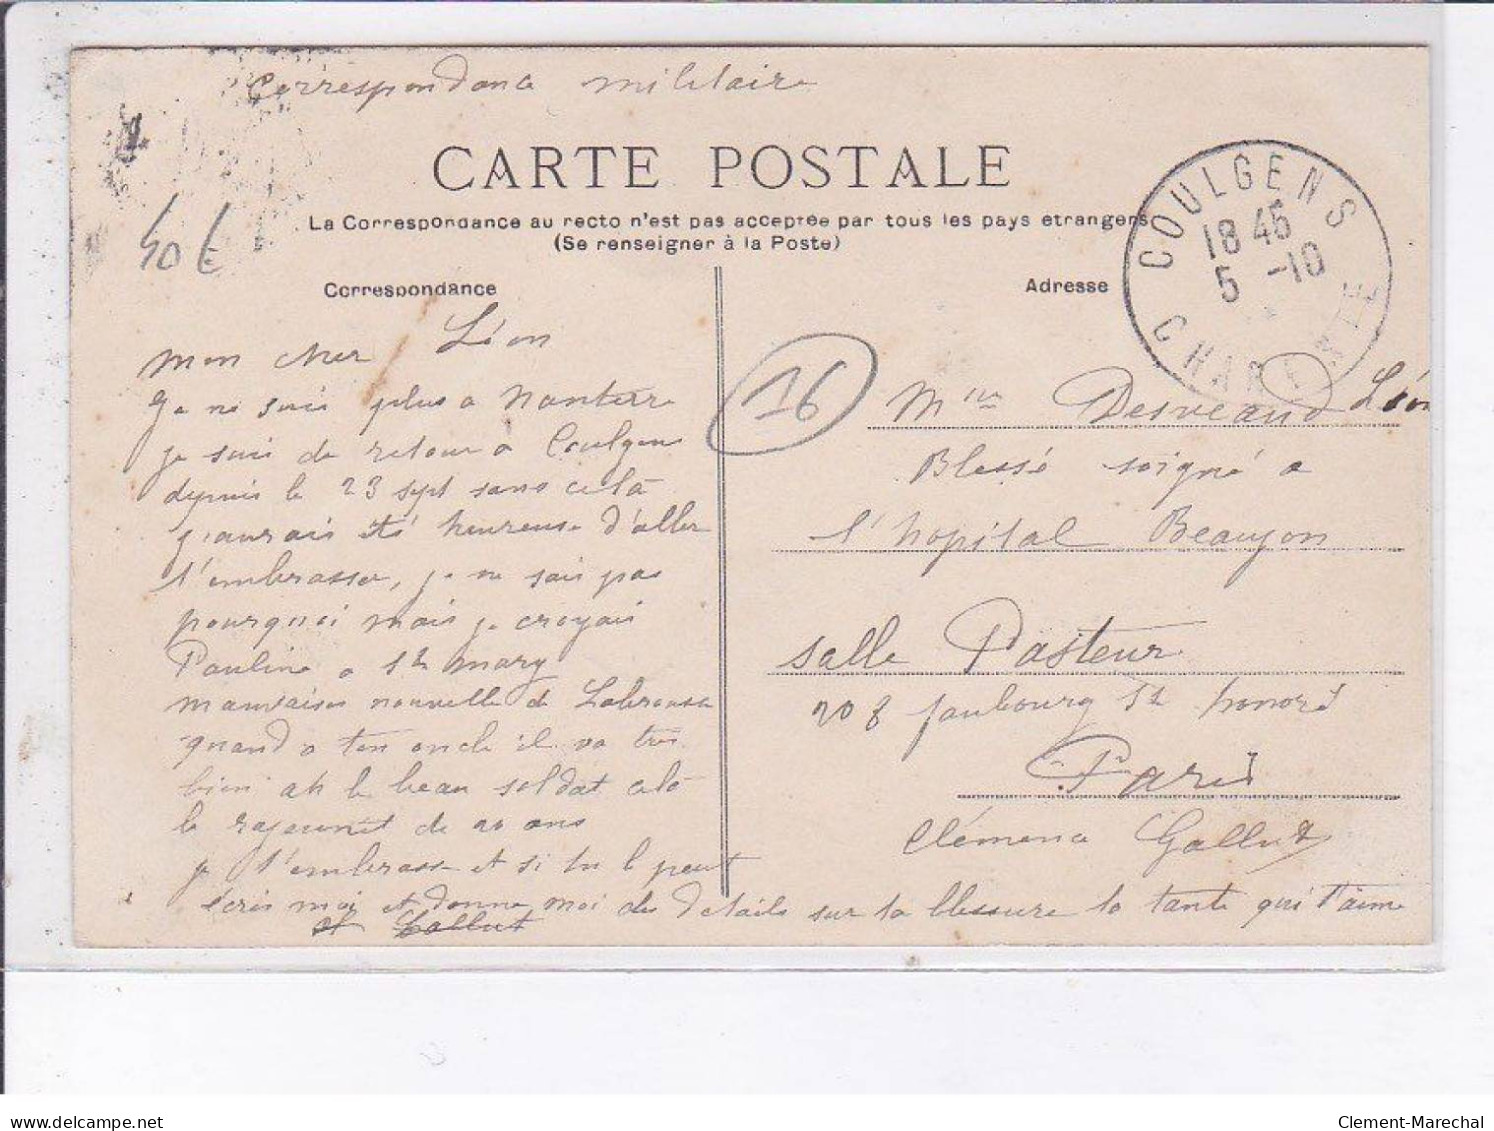 Correspondance militaire
CARTE POSTALE
La Correspondance au recto n'est pas acceptée par tous les pays étrangers
(Se renseigner à la Poste)
Correspondance
Adresse
COULGENS
18 45
5 -10
CHARENTE
40 €
16
mon cher Léon
Je ne suis plus a Nanterre
je suis de retour a Coulgens
depuis le 23 sept sans celà
j'aurais été heureuse d'aller
t'embrasser, je ne sais pas
pourquoi mais je croyais
Pauline a St mary
mauvaises nouvelle de
quand a ton oncle il va tres
bien ah le beau soldat celà
le rajeunit de 20 ans
je t'embrasse et si tu le peut
écris moi et donne moi des details sur ta blessure ta tante qui t'aime
Gallut
Mr Desveaud Léon
Blessé soigné a
l'hopital Beaujon
salle Pasteur
208 faubourg St honoré
Paris
Clémence Gallut
delcampe.net
Clement-Marechal